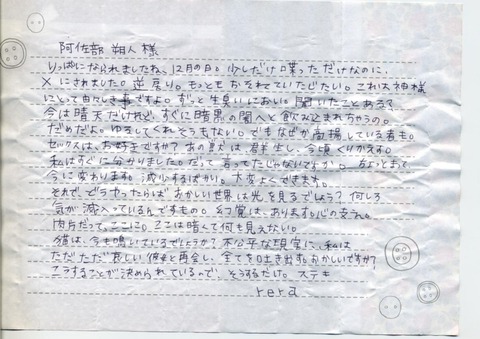 阿佐部 朔人 様
りっぱになられましたね、12月の日。少しだけ口笑っただけなのに、
×にされました。逆戻り。もっともおそれていたじたい。これは大神様
にとって由々しき事ですよ。ずっと生臭いにおい。聞いたことある?
今は晴天だけれど、すぐに暗黒の闇へと飲み込まれちゃうの。
だめだよ。ゆるしてくれそうもない。でもなぜか高揚している者も。
セックスは、お好きですか?あの獣は群生し、今頃くりかえす。
私はすぐに分かりました。だって言ってたじゃないですか。ちょっとまって
今に変わります。減少するばかり。大変よくできます。
それで、どうやったらばおかしい世界は光を見るでしょう?何しろ
気が滅入っているんですもの。幻覚は、あります。心の支え。
肉片だって、ここに。ここは暗くて何も見えない。
猫は、今も鳴いているでしょうか?不公平な現実に、私は
ただただ哀しい。彼女と再会し、全てを吐き出す。おかしいですか?
こうすることが決められているので、そうするだけ。ステキ
rera